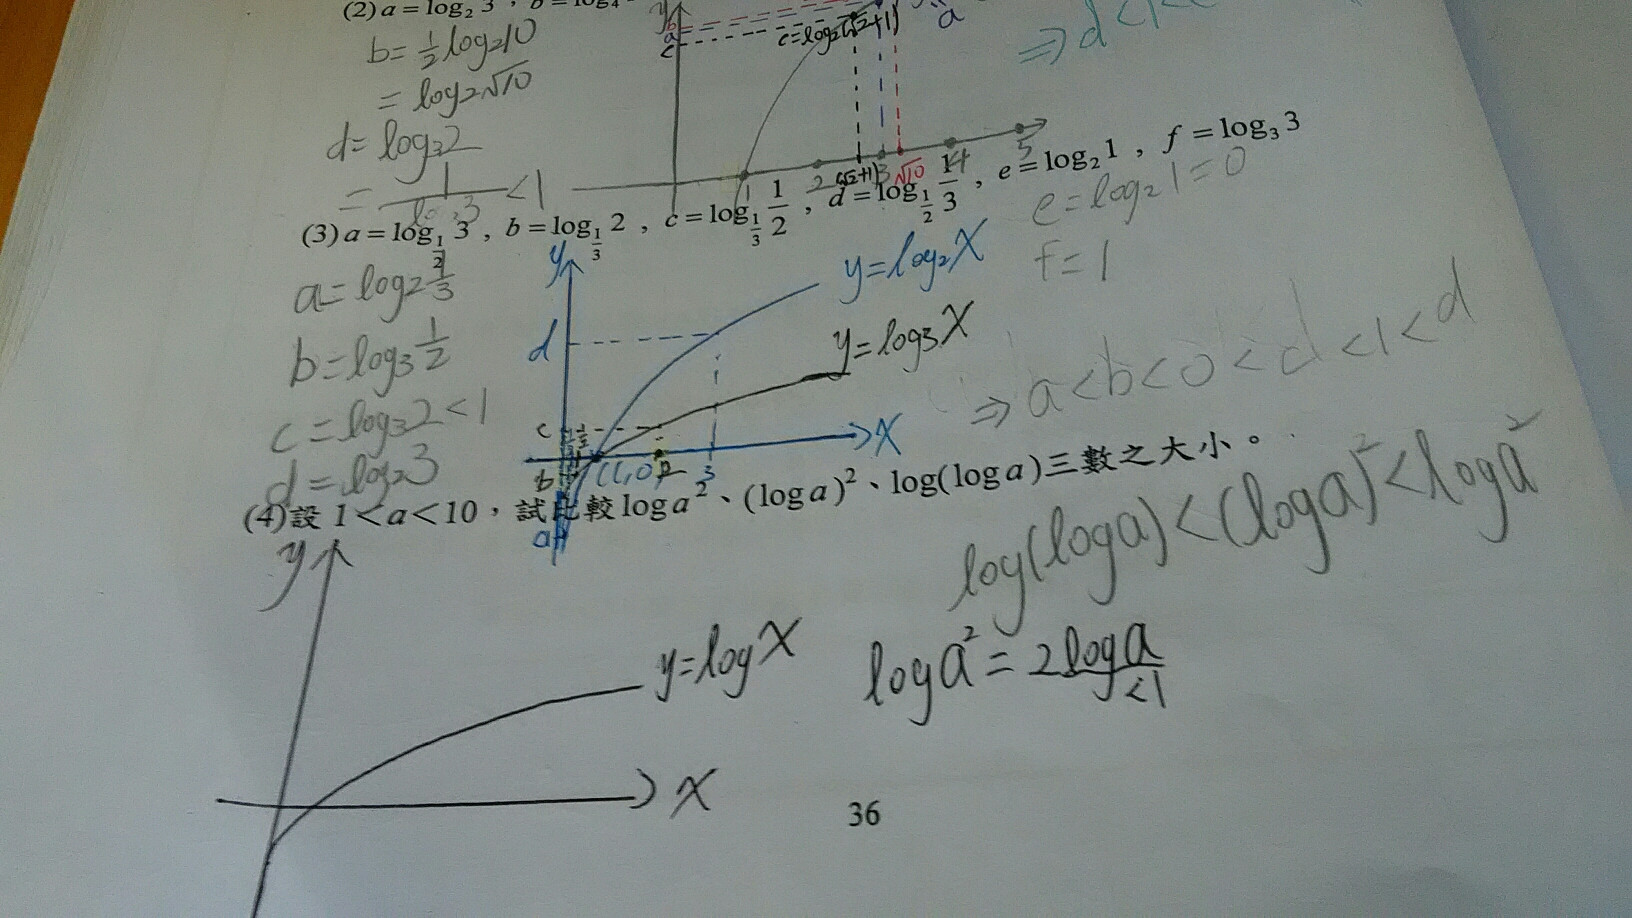 (2) a = log₂ 3 , b = log₄
b = ½ log₂10
= log₂√10
d = log₃2
= 1/log₂3 < 1
y
b
a
c
c = log₂(√2+1)
a
1 2 (√2+1) 3 √10 4 5
⇒ d < 1 < c
(3) a = log_{1/2} 3 , b = log_{1/3} 2 , c = log_{1/3} 1/2 , d = log_{1/2} 1/3 , e = log₂ 1 , f = log₃ 3
a = log₂ 1/3
b = log₃ 1/2
c = log₃2 < 1
d = log₂3
e = log₂1 = 0
f = 1
y
y = log₂X
y = log₃X
d
c
b
a
(1,0) 2 3
X
⇒ a < b < 0 < d < 1 < d
(4)設 1 < a < 10,試比較 log a²、(log a)²、log(log a) 三數之大小。
log(loga) < (loga)² < loga²
y
y = logX
X
loga² = 2loga
<1
36